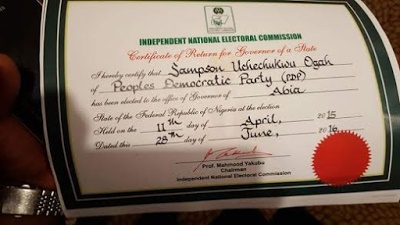 INDEPENDENT NATIONAL ELECTORAL COMMISSION
Certificate of Return for Governor of a State
I hereby certify that Sampson Uchechukwu Ogah
of Peoples Democratic Party (PDP)
has been elected to the office of Governor of Abia
State of the Federal Republic of Nigeria at the election
Held on the 11th day of April, 2015
Dated this 28th day of June, 2016
Prof. Mahmood Yakubu
Chairman
Independent National Electoral Commission